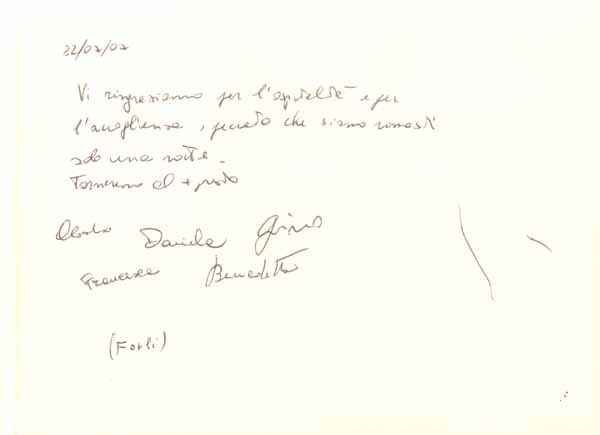 22/07/07
Vi ringraziamo per l'ospitalità e per
l'accoglienza, peccato che siamo rimasti
solo una notte.
Torneremo al + presto
Daniela
Francesca Benedetta
(Forlì)